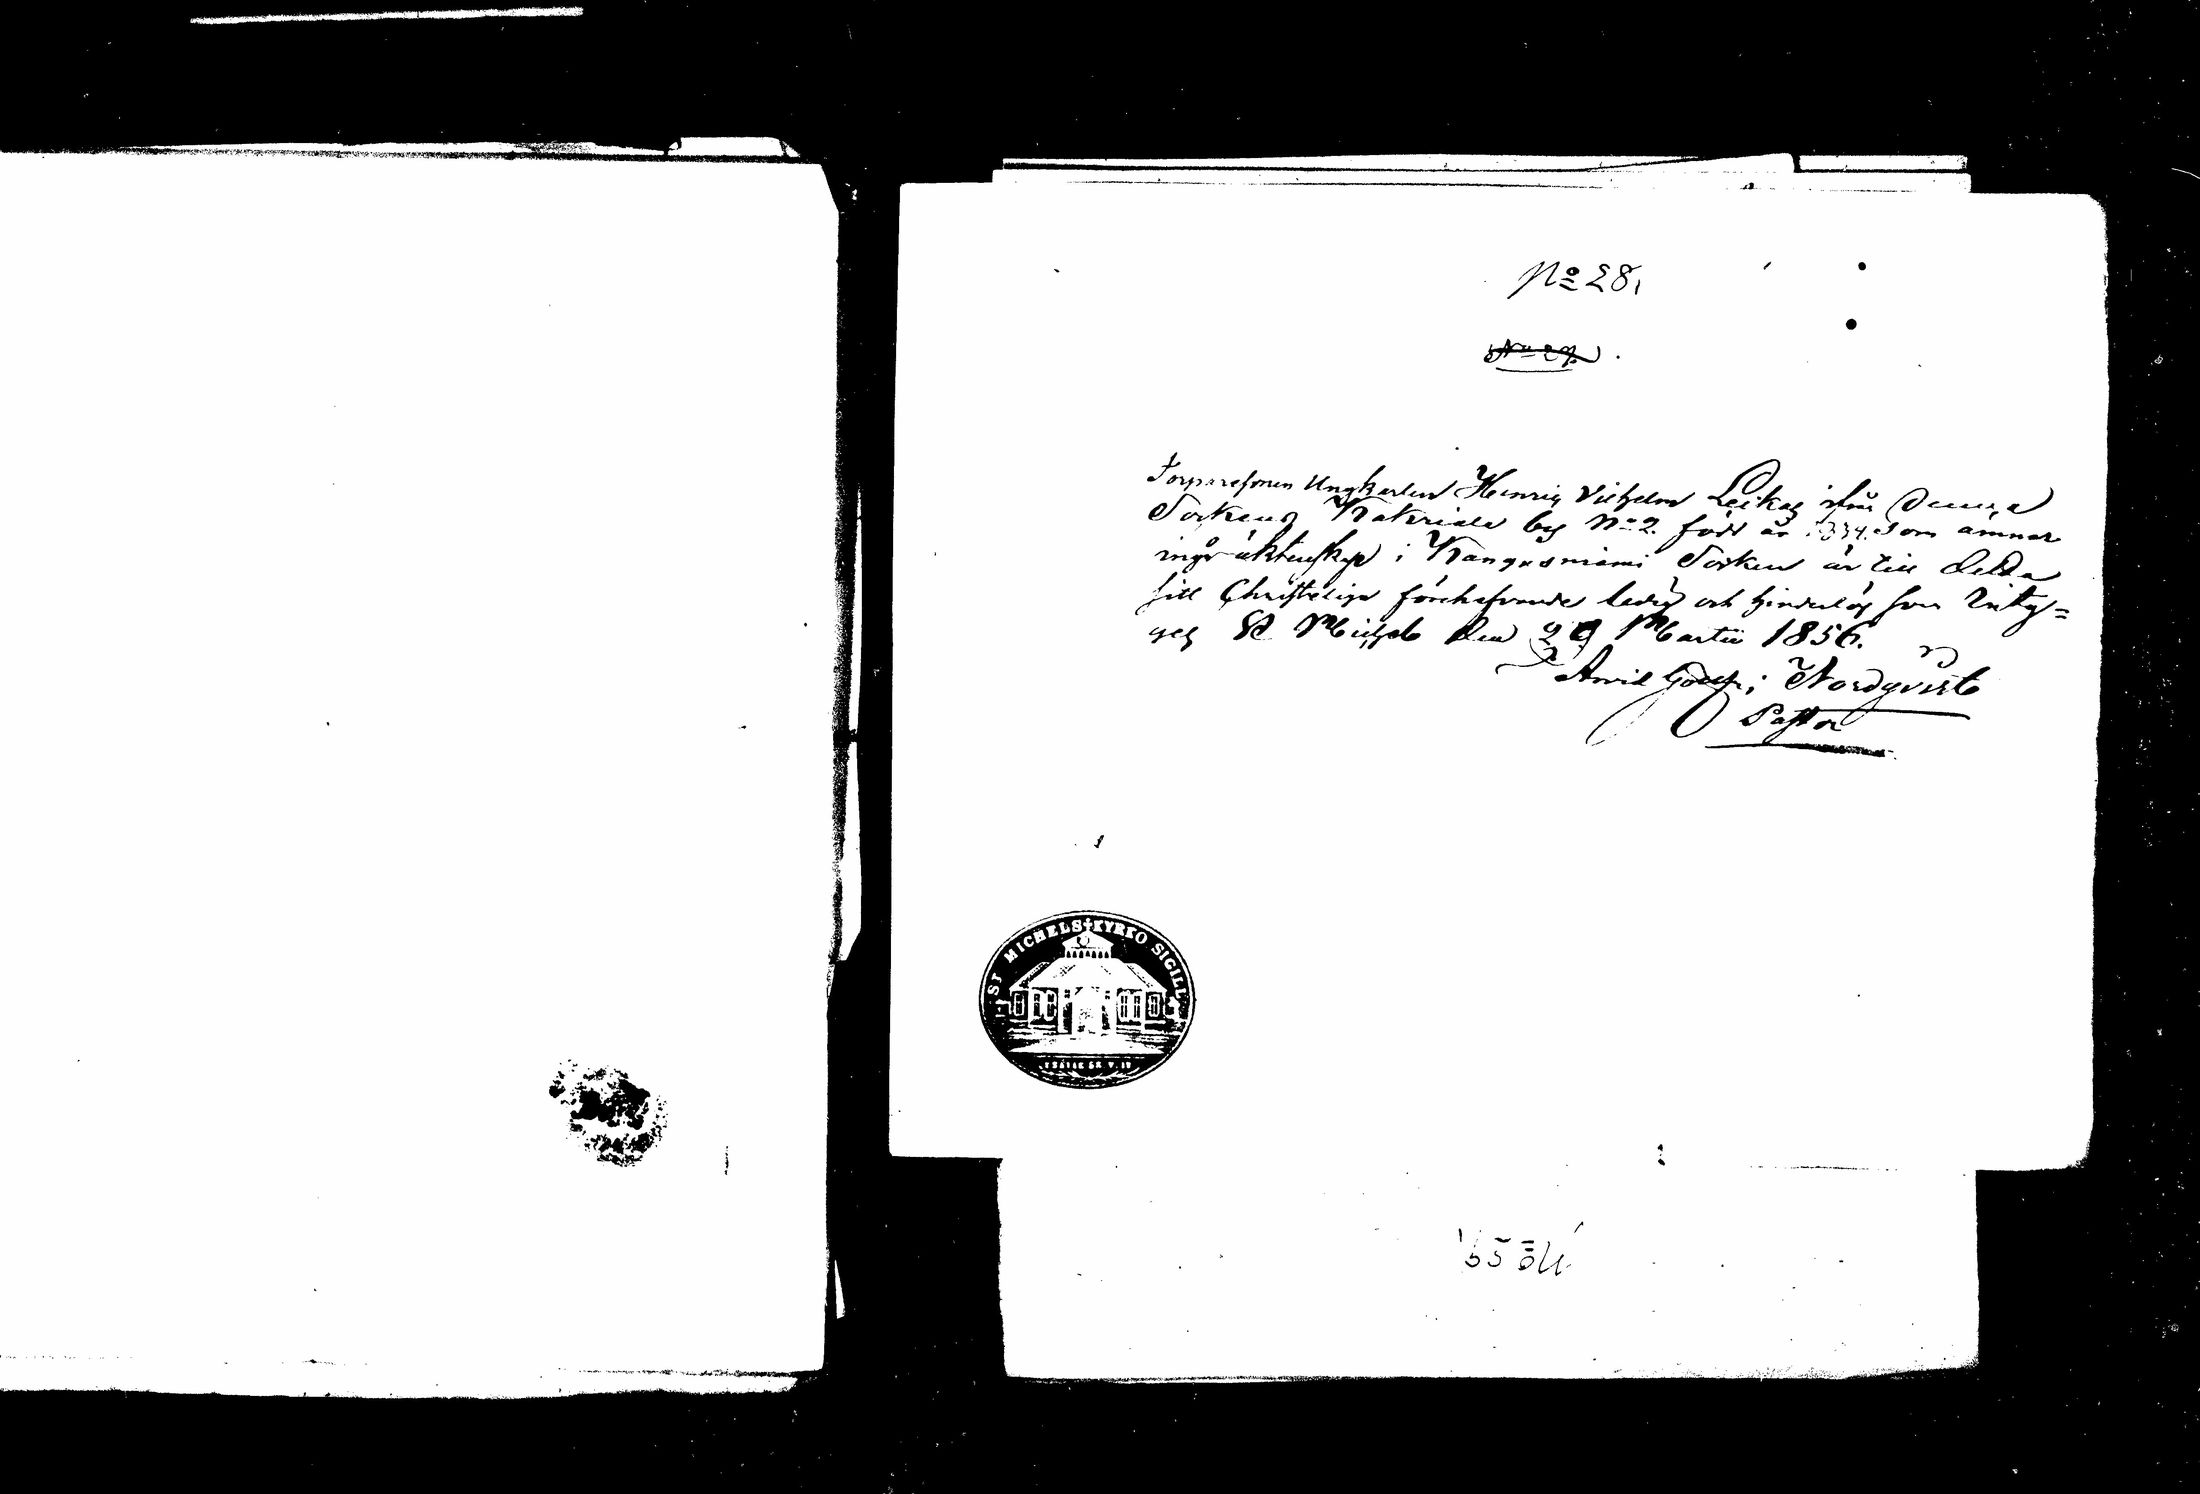 No 28,
No 27.
Torparesonen Ungkarlen Henric Vilhelm Leikas ifrån denna
Socken Kakriala by No 2. född år 1834. som ämnar
ingå äktenskap i Kangasniemi Socken är till detta
sitt Christeliga förehafvande ledig och hinderlös som inty=
gas St Michels den 29 Martii 1856.
Arvid Nordqvist
Pastor
ST MICHELS KYRKO SIGILL